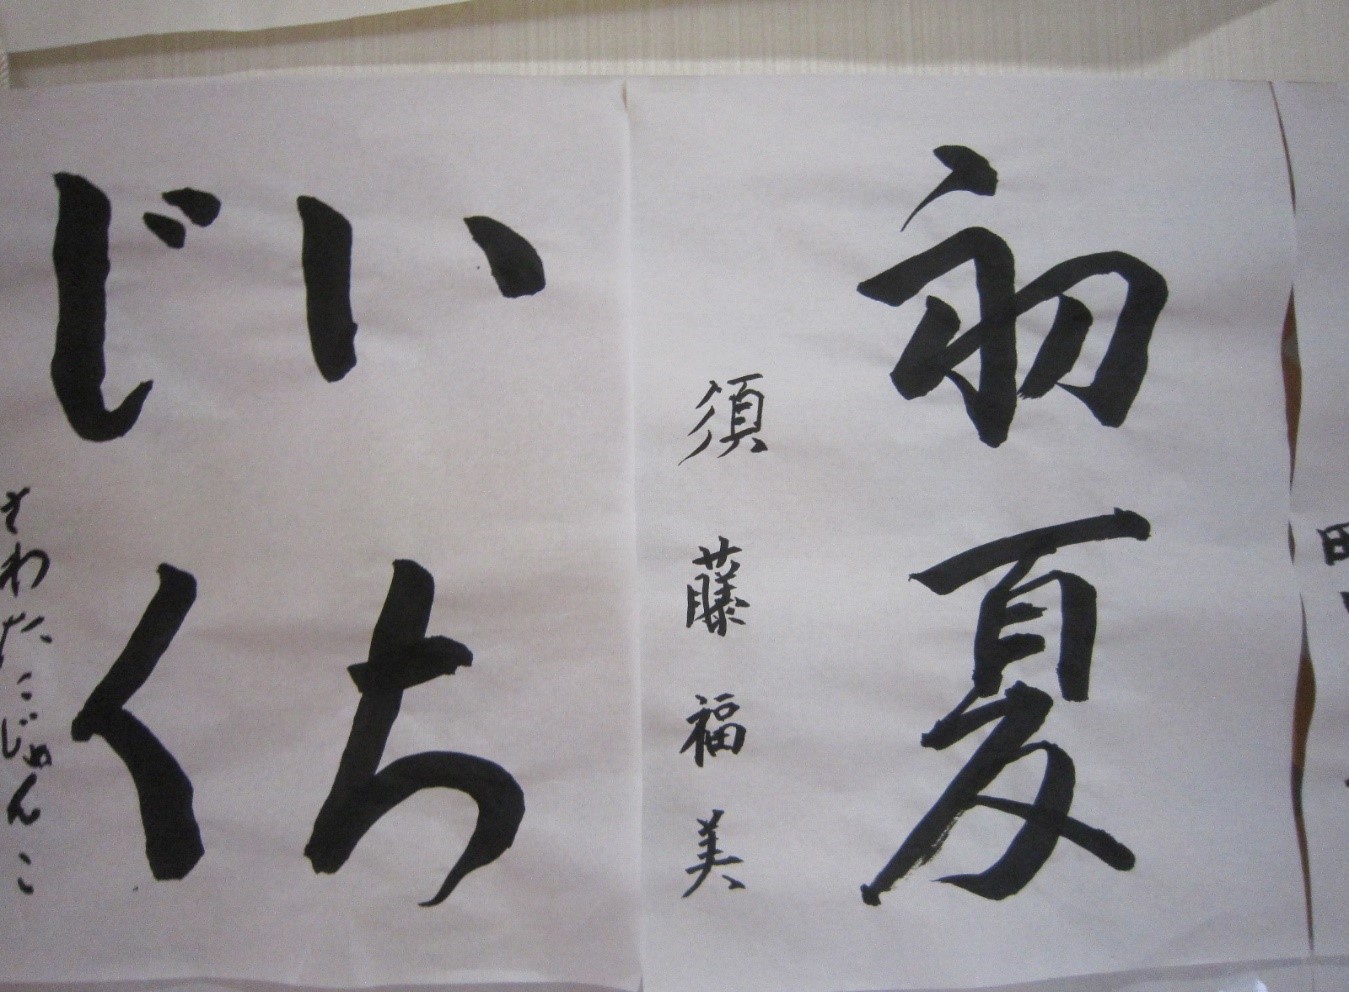 初夏
須藤福美
いち
じく
さわたこじゅんこ